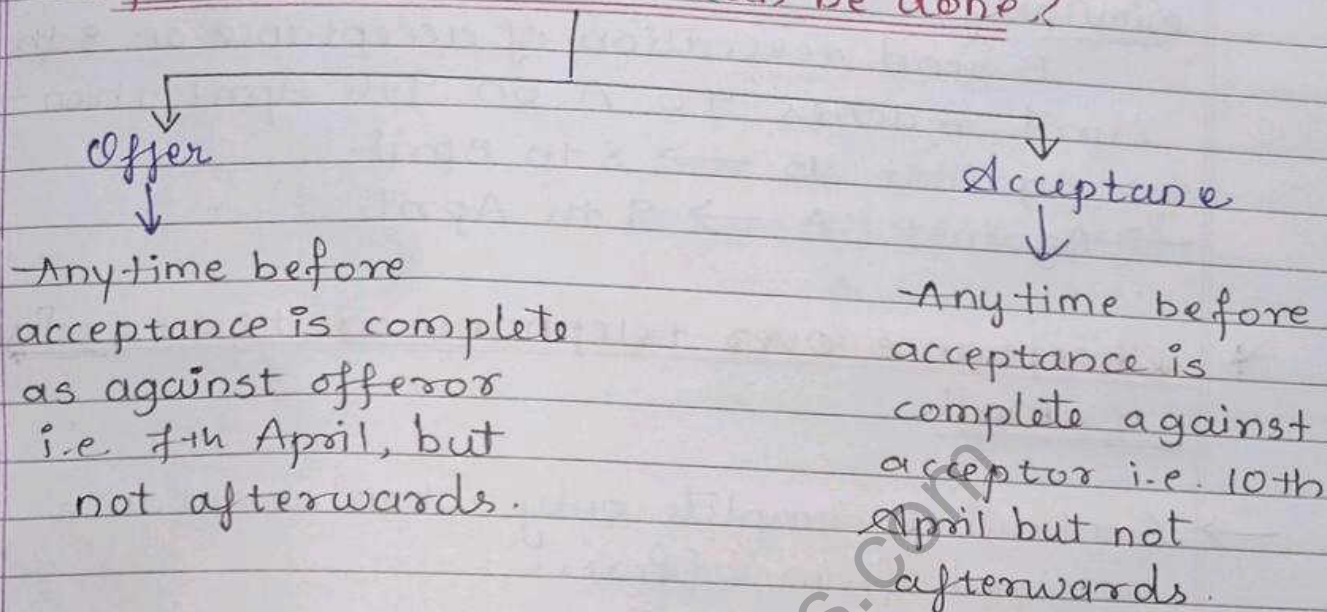 be done?
Offer
Acceptane
Anytime before
acceptance is complete
as against offeror
i.e 7th April, but
not afterwards.
Anytime before
acceptance is
complete against
acceptor i.e. 10th
April but not
afterwards.